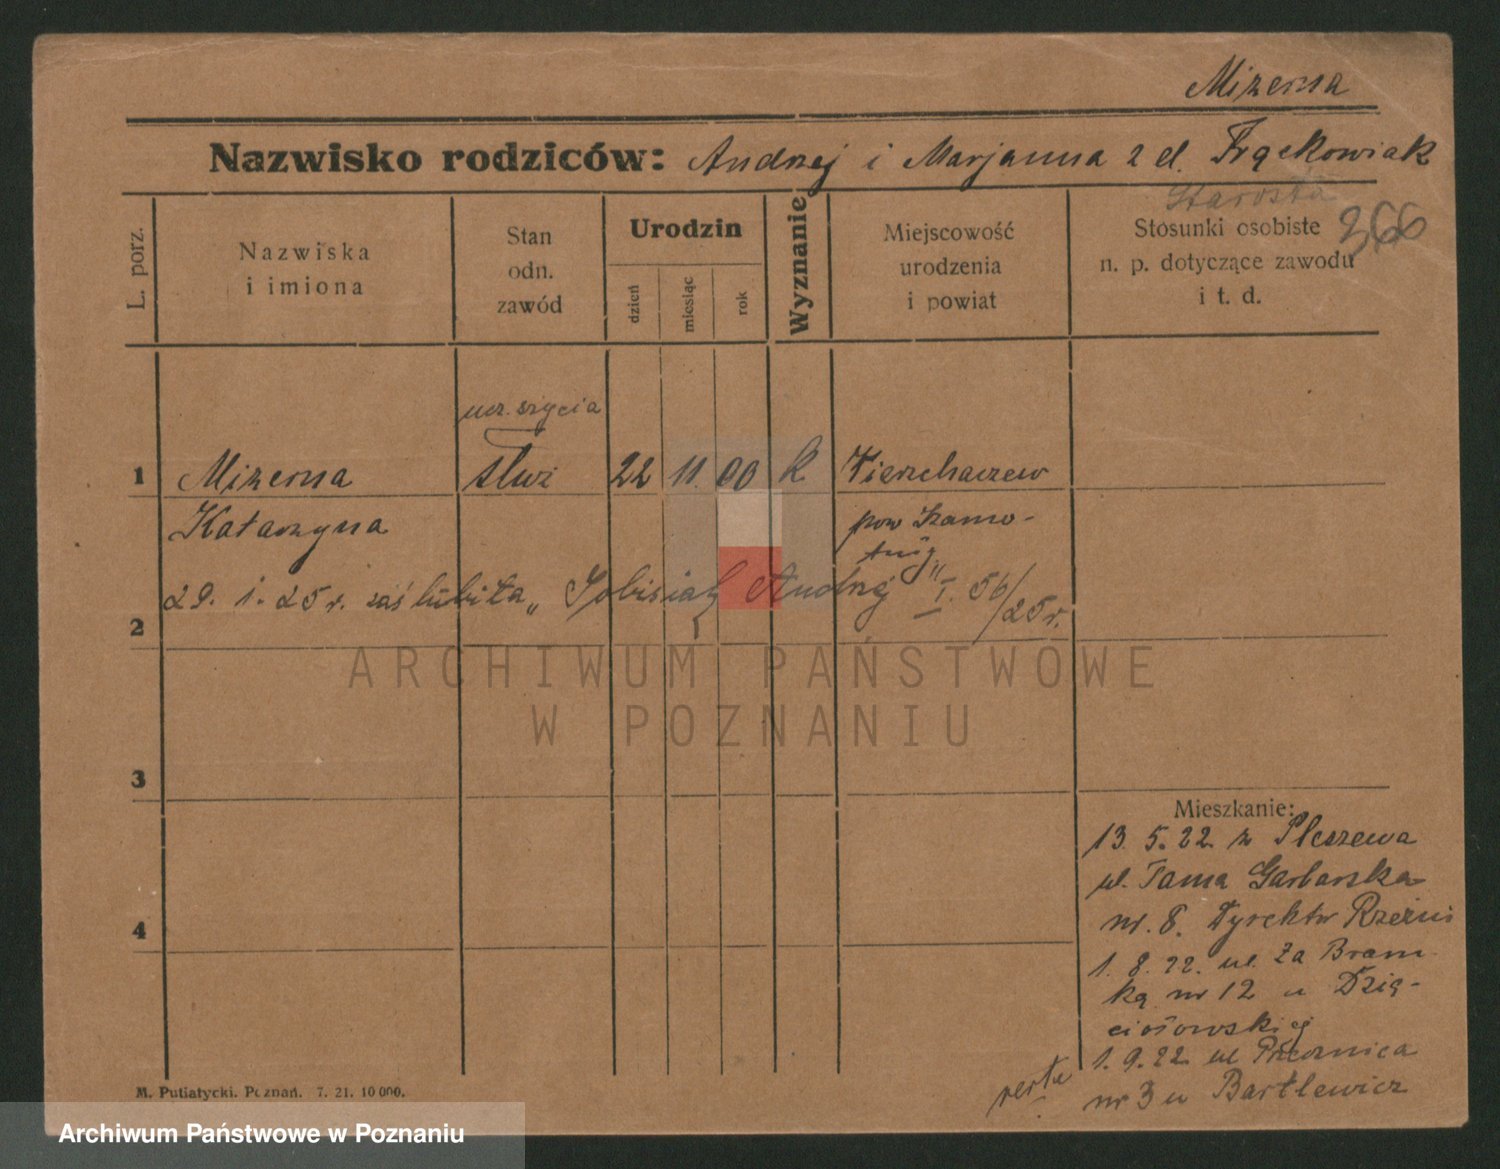 Mizerna
Nazwisko rodziców: Andrzej i Marjanna z d. Frąckowiak
Starosta
366
L. porz.
Nazwiska
i imiona
Stan
odn.
zawód
Urodzin
dzień
miesiąc
rok
Wyznanie
Miejscowość
urodzenia
i powiat
Stosunki osobiste
n. p. dotyczące zawodu
i t. d.
ucz. szycia
1 Mizerna służ 22 11. 00 k Wierzchaczew
Katarzyna pow Szamo-
tuły
29. 1. 25 r. zaślubiła „ Andrzej" I. 56/25 r.
2
ARCHIWUM PAŃSTWOWE
W POZNANIU
3
Mieszkanie:
13. 5. 22 z Pleszewa
ul. Tama Garbarska
4
nr. 8. Dyrektor
1. 8. 22. ul. Za Bram-
ką nr 12 u Dzię-
ciołowskiej
1. 9. 22 ul Przecznica
nr 3 u Bartlewicz
verte
M. Putiatycki. Poznań. 7. 21. 10 000.
Archiwum Państwowe w Poznaniu